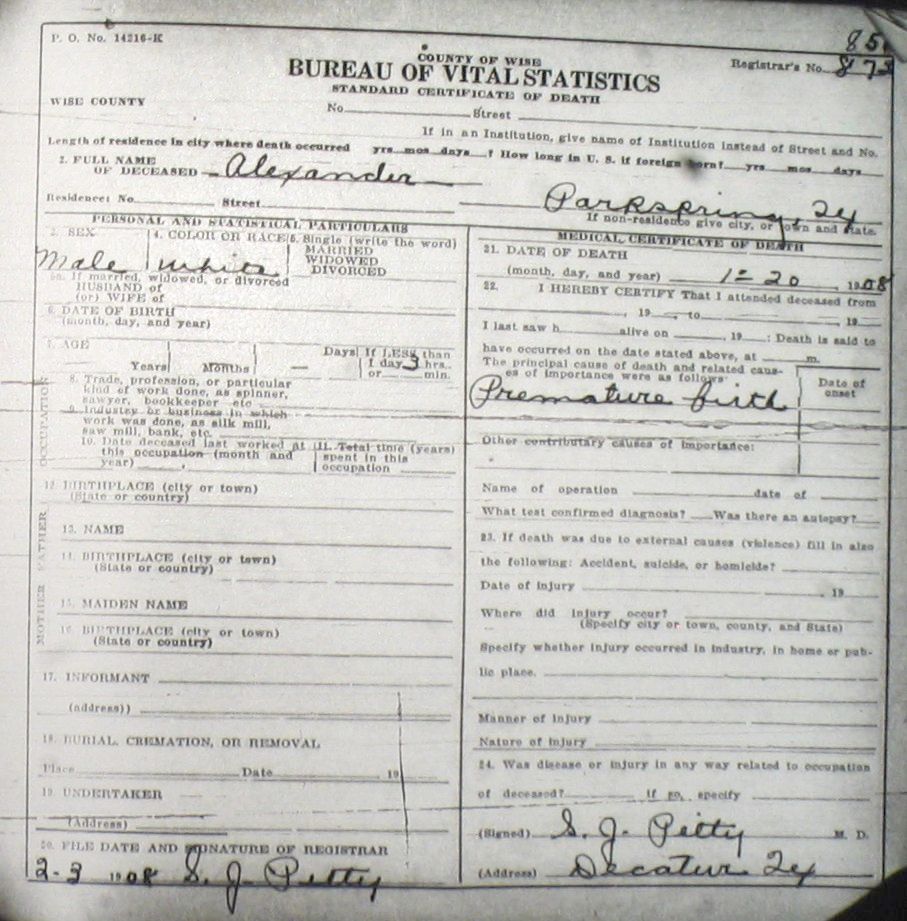 P. O. No. 14216-K
85
COUNTY OF WISE
Registrar's No. 873
BUREAU OF VITAL STATISTICS
STANDARD CERTIFICATE OF DEATH
WISE COUNTY
No. Street
If in an Institution, give name of Institution instead of Street and No.
Length of residence in city where death occurred yrs mos days ? How long in U. S. if foreign born? yrs mos days
2. FULL NAME
OF DECEASED Alexander
Residence: No. Street Parkspring, Tex
If non-residence give city, or town and state.
PERSONAL AND STATISTICAL PARTICULARS
3. SEX
Male
4. COLOR OR RACE
white
5. Single (write the word)
MARRIED
WIDOWED
DIVORCED
5a. If married, widowed, or divorced
HUSBAND of
(or) WIFE of
6. DATE OF BIRTH
(month, day, and year)
7. AGE
Years Months Days If LESS than
1 day 3 hrs.
or min.
OCCUPATION
8. Trade, profession, or particular
kind of work done, as spinner,
sawyer, bookkeeper etc
9. Industry or business in which
work was done, as silk mill,
saw mill, bank, etc
10. Date deceased last worked at
this occupation (month and
year)
11. Total time (years)
spent in this
occupation
12. BIRTHPLACE (city or town)
(State or country)
FATHER
13. NAME
14. BIRTHPLACE (city or town)
(State or country)
MOTHER
15. MAIDEN NAME
16. BIRTHPLACE (city or town)
(State or country)
17. INFORMANT
(address))
18. BURIAL, CREMATION, OR REMOVAL
Place Date 19
19. UNDERTAKER
(Address)
20. FILE DATE AND SIGNATURE OF REGISTRAR
2-3 1908 S. J. Petty
MEDICAL CERTIFICATE OF DEATH
21. DATE OF DEATH
(month, day, and year) 1-20, 1908
22. I HEREBY CERTIFY That I attended deceased from
, 19 , to , 19
I last saw h alive on , 19 : Death is said to
have occurred on the date stated above, at m.
The principal cause of death and related caus-
es of importance were as follows
Date of
onset
Premature birth
Other contributary causes of importance:
Name of operation date of
What test confirmed diagnosis? Was there an autopsy?
23. If death was due to external causes (violence) fill in also
the following: Accident, suicide, or homicide?
Date of injury , 19
Where did injury occur?
(Specify city or town, county, and State)
Specify whether injury occurred in industry, in home or pub-
lic place.
Manner of injury
Nature of injury
24. Was disease or injury in any way related to occupation
of deceased? If so, specify
(Signed) S. J. Petty M. D.
(Address) Decatur Tex